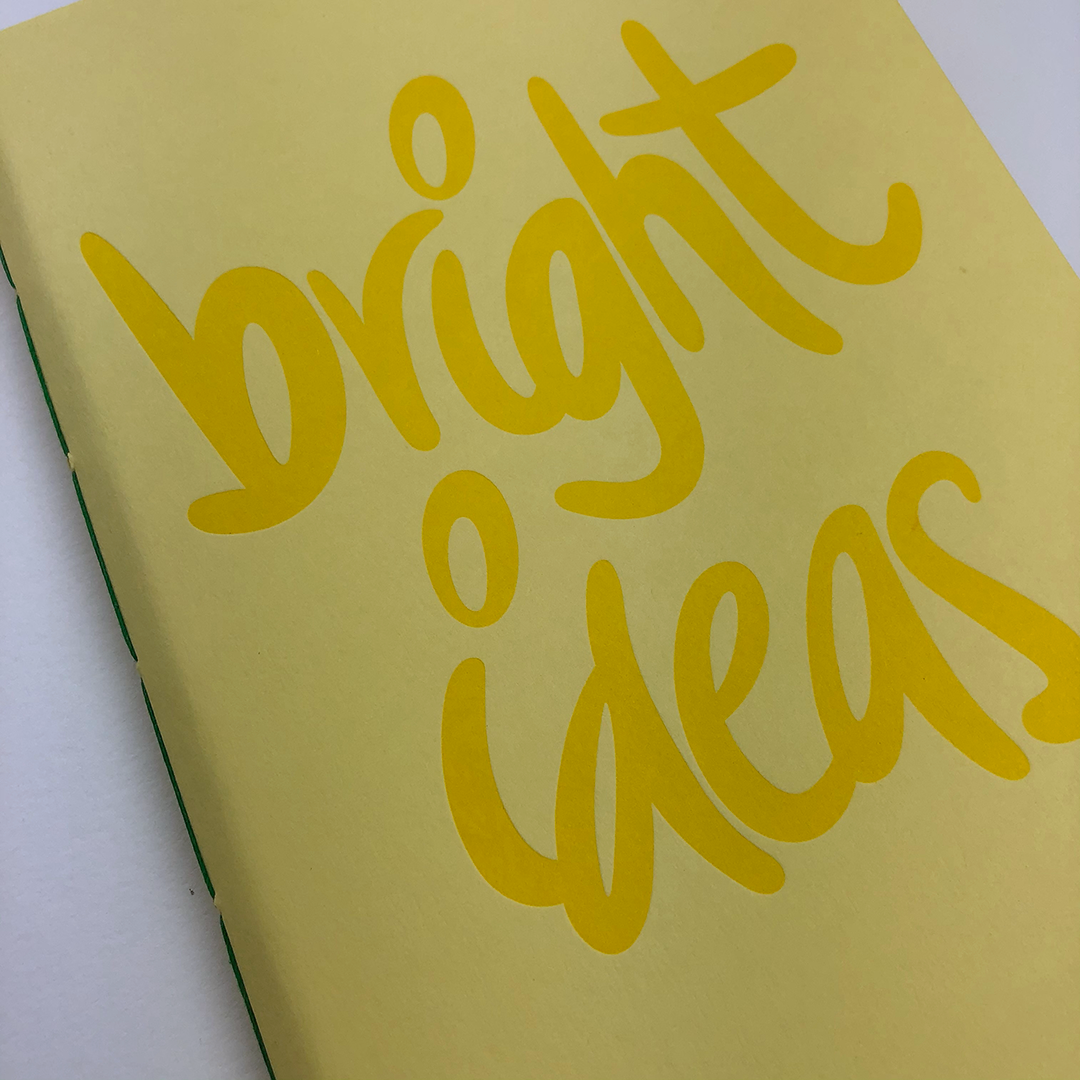 bright
ideas